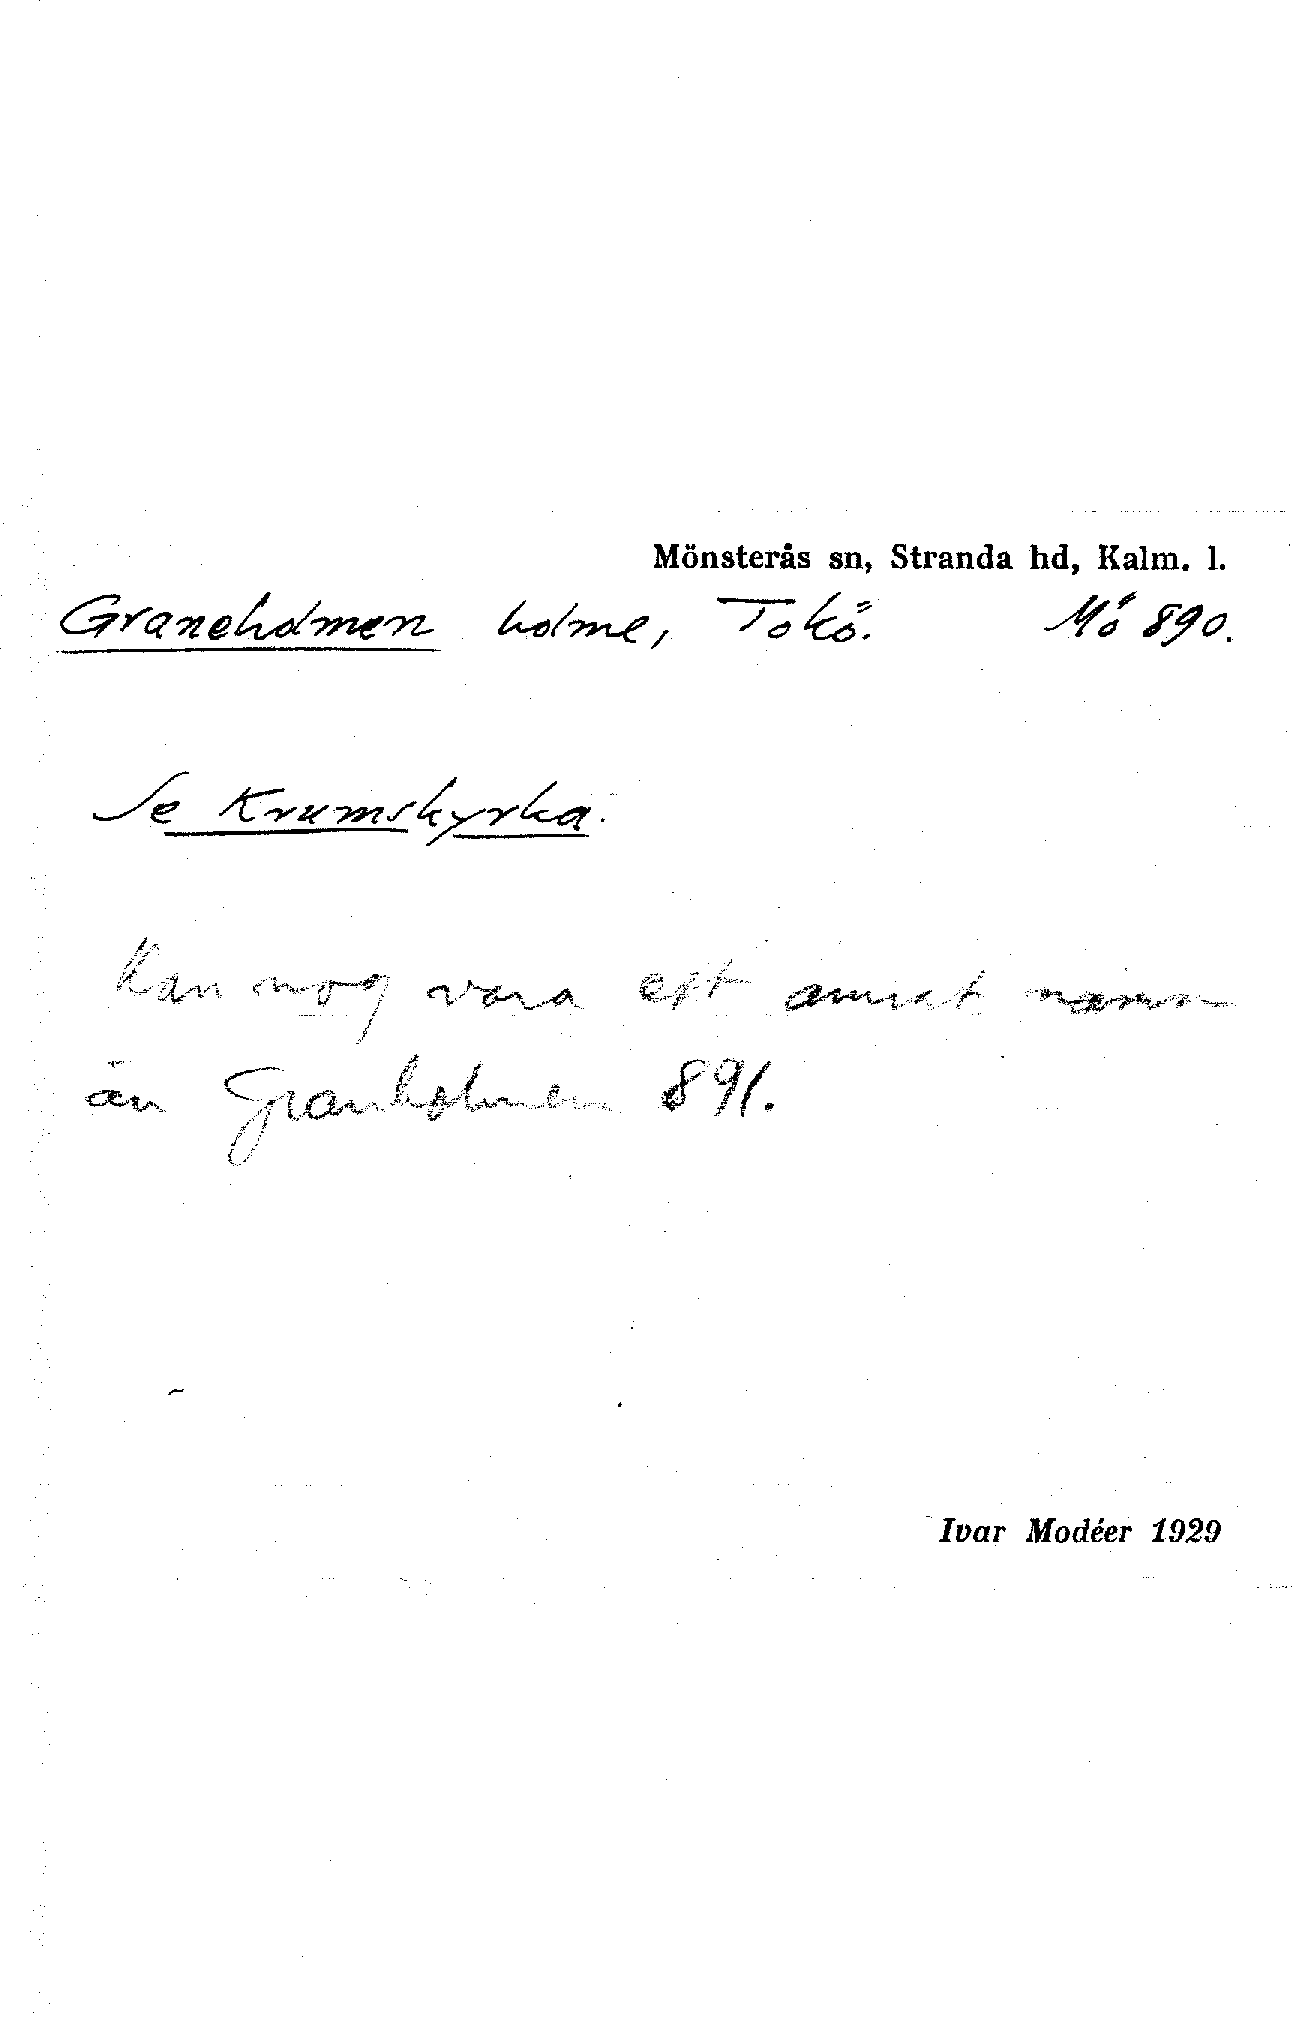 Mönsterås sn, Stranda hd, Kalm. l.
Graneholmen holme, Tokö. Mö 890.
Se Krumskyrka.
Kan nog vara ett annat namn
än Granholmen 891.
Ivar Modéer 1929